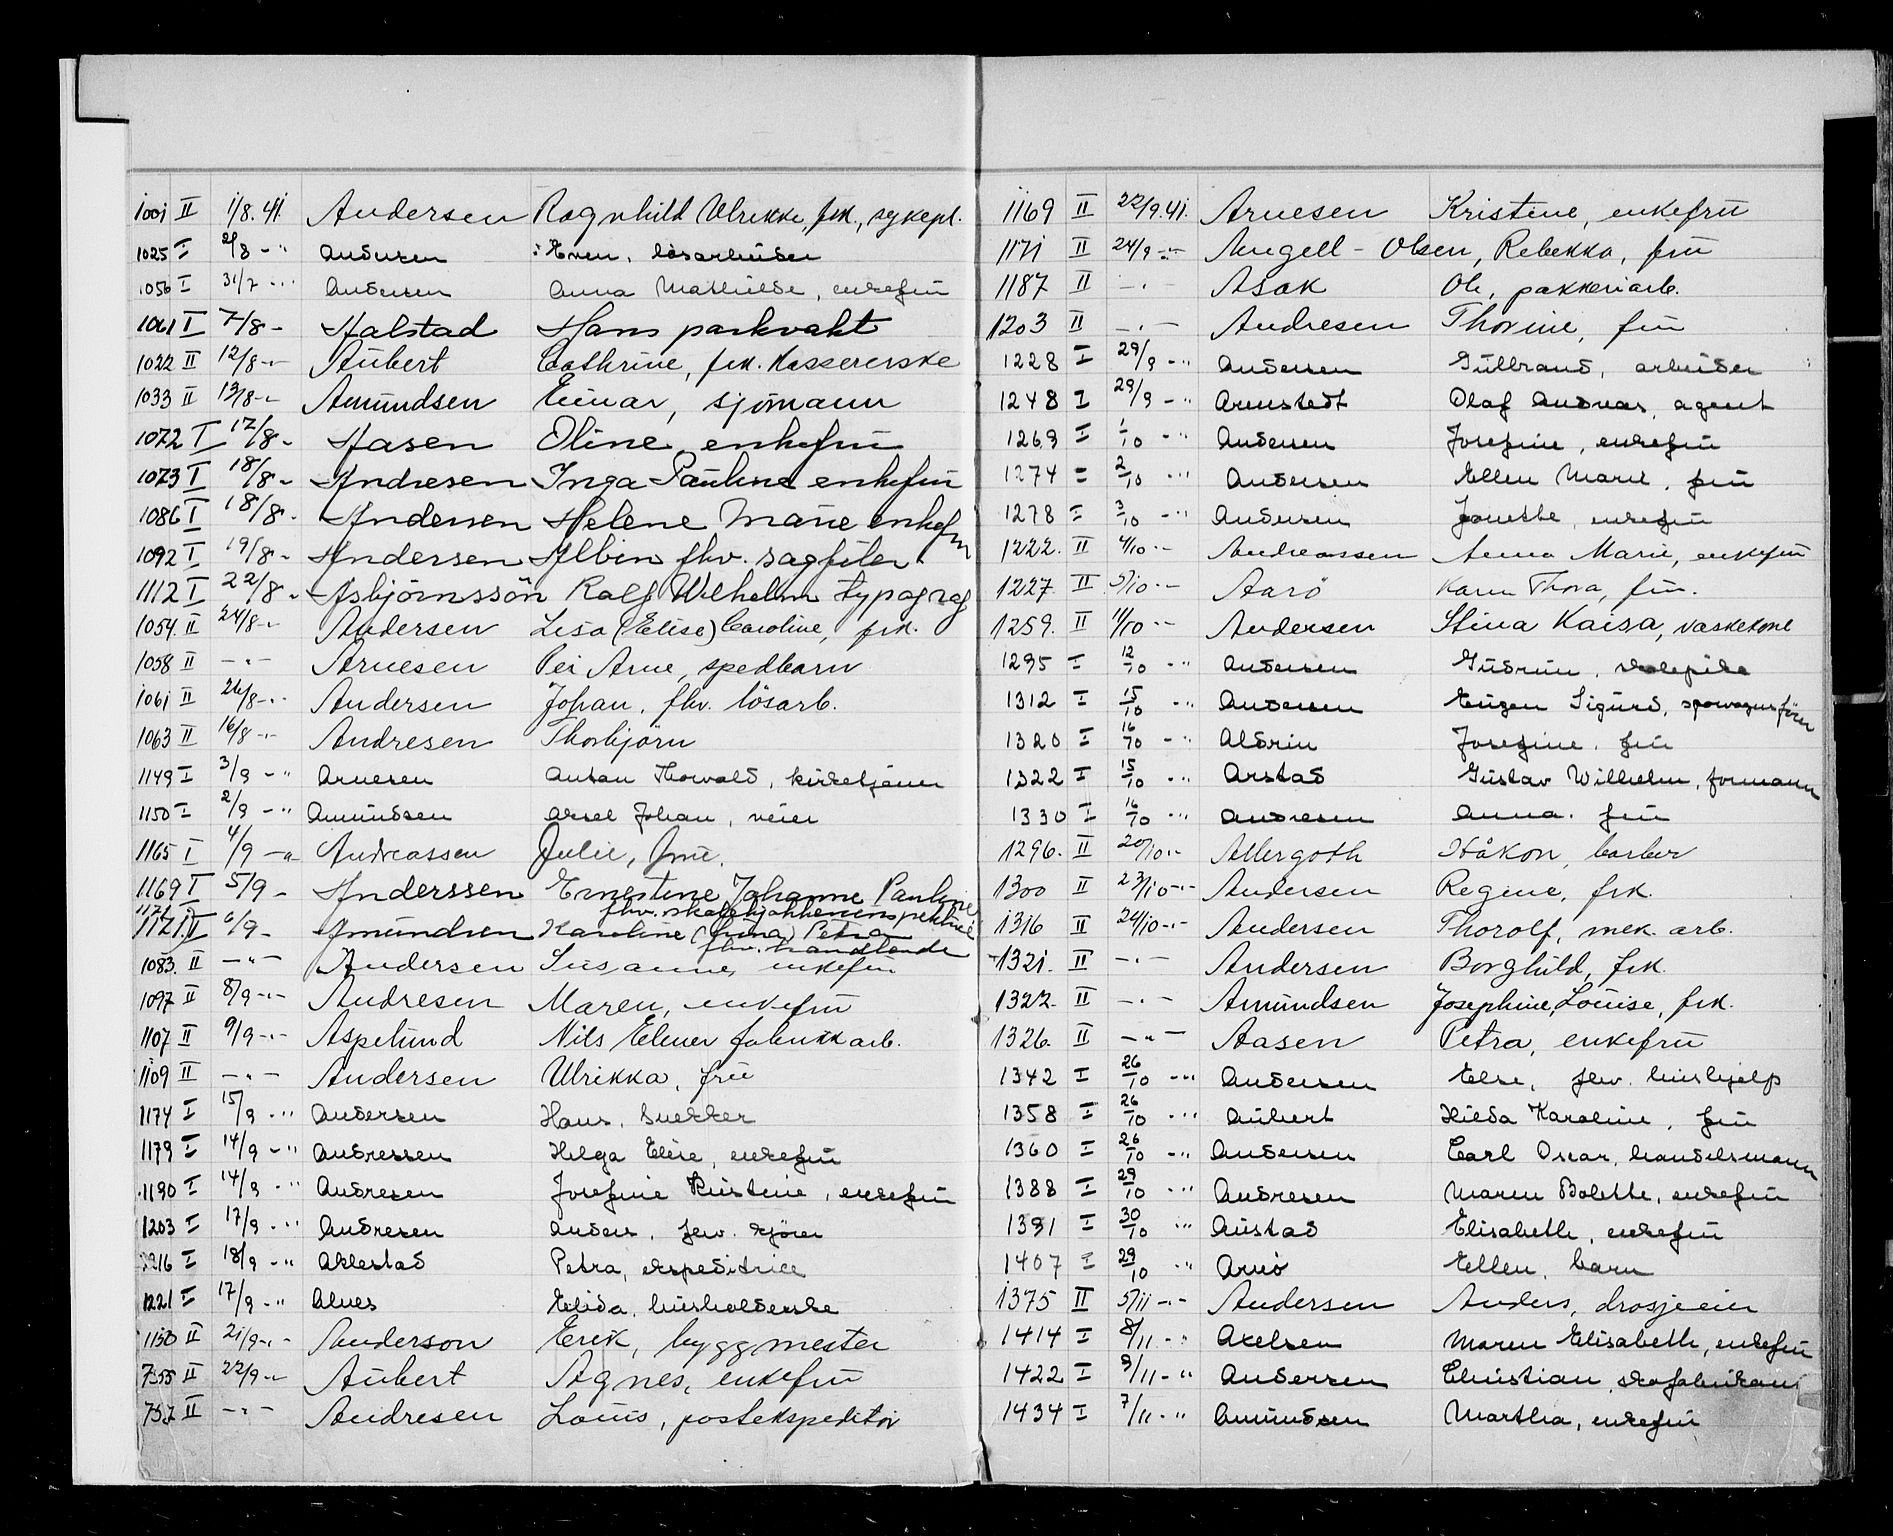 1001 II 1/8.41. Andersen Ragnhild Ulrikke, frk. sykepl.
1025 I 2/8 -" Andersen Even, løsarbeider
1056 I 31/7 -" Andersen Anna Mathilde, enkefrü
1061 I 7/8 - Aalstad Hans parkvakt
1022 II 12/8 -"- Aübert Cathrine, frk. Kassererske
1033 II 13/8 -"- Amündsen Einar, sjömann
1072 I 17/8 - Aasen Oline enkefrü
1073 I 18/8 - Andresen Inga Pauline enkefrü
1086 I 18/8 - Andersen Helene Marie enkefrü
1092 I 19/8 - Andersen Albin fhv. sagfiler
1112 I 22/8 - Asbjörnssön Ralf Wilhelm typograf
1054. II 24/8 -"- Andersen Lisa (Elise) Caroline, frk.
1058 II -"- Arnesen Per Arne, spedbarn
1061 II 26/8 -"- Andersen Johan, fhv. lösarb.
1063 II 16/8 -"- Andresen Thorbjörn
1149 I 3/9 -" Arnesen Anton Thorvald, kirketjener
1150 I 2/9 -" Amündsen Aksel Johan, veier
1165 I 4/9 -"- Andreassen Julie, frue.
1169 I 5/9 - Anderssen Ernestine Johanne Pauline
fhv. skolekjökkeninspektrice
1171 I 6/9 - Amundsen Karoline (Lina) Petra
fhv. handlende
1083. II -"- Andersen Susanne, enkefrü
1097 II 8/9 -"- Andresen Maren, enkefrü
1107 II 9/9 -"- Aspelund Nils Elmer fabrikkarb.
1109 II -"- Andersen Ulrikka, frü
1174 I 15/9 -" Andersen Hans, snekker
1179 I 14/9 -" Andressen Helga Elise, enkefrü
1190 I 14/9 -" Andresen Josefine Kristine, enkefrü
1203 I 17/9 -" Andresen Anders, fhv. kjører
1216 I 18/9 -" Aklestad Petra, ekspeditrice
1221 I 17/9 -" Alnes Elida, hüsholderske
1150 II 21/9 -"- Anderson Erik, byggmester
II 22/9 -"- Aübert Agnes, enkefrü
II -"- Andresen Louis, postekspeditör
1169 II 22/9.41. Arnesen Kristine, enkefrü
1171 II 24/9 -"- Angell-Olsen, Rebekka, frü
1187 II -"- Asak Ole, pakkeriarb.
1203 II -"- Andresen Thorine, frü
1228 I 29/9 -" Andersen Gülbrand, arbeider
1248 I 29/9 -" Arenstedt Olaf Andreas, agent
1269 I 1/10 -" Andersen Josefine, enkefrü
1274 = 2/10 -" Andersen Ellen Marie, frü
1278 I 3/10 -" Andersen Jonette, enkefrü
1222. II 4/10 -"- Andreassen Anna Marie, enkefrü
1227 II 5/10 -"- Aarö Karen Thora, frü.
1259. II 11/10 -"- Andersen Stina Kaisa, vaskekone
1295 I 12/10 -" Andersen Güdrün, skolepike
1312 I 15/10 -" Andersen Eugen Sigürd, sporvognsfører
1320 I 16/10 -" Aldrin Josefine, frü
1322 I 15/10 -" Arstad Güstav Wilhelm, formann
1330 I 16/10 -" Andresen Anna. frü
1296. II 20/10 -"- Allergoth Håkon, barber
1300 II 23/10 -"- Andersen Regine, frk.
1316 II 24/10 -"- Andersen Thorolf, mek. arb.
1321. II -"- Andersen Borghild, frk.
1322. II -"- Amundsen Josephine Louise, frk.
1326. II -"- Aasen Petra, enkefrü
1342 I 26/10 -" Andersen Else, fhv. hüshjelp
1358 I 26/10 -" Aübert Hilda Karoline, frü
1360 I 26/10 -" Andersen Carl Oscar, handelsmann
1388 I 29/10 -" Andresen Maren Bolette, enkefrü
1391 I 30/10 -" Aüstad Elisabeth, enkefrü
1407 I 29/10 -" Arnö Ellen, barn
1375 II 5/11 -"- Andersen Anders, drosjeeier
1414 I 8/11 -" Axelsen Maren Elisabeth, enkefrü
1422 I 9/11 -" Andersen Christian, skofabrikant
1434 I 7/11 -" Amündsen Martha, enkefrü